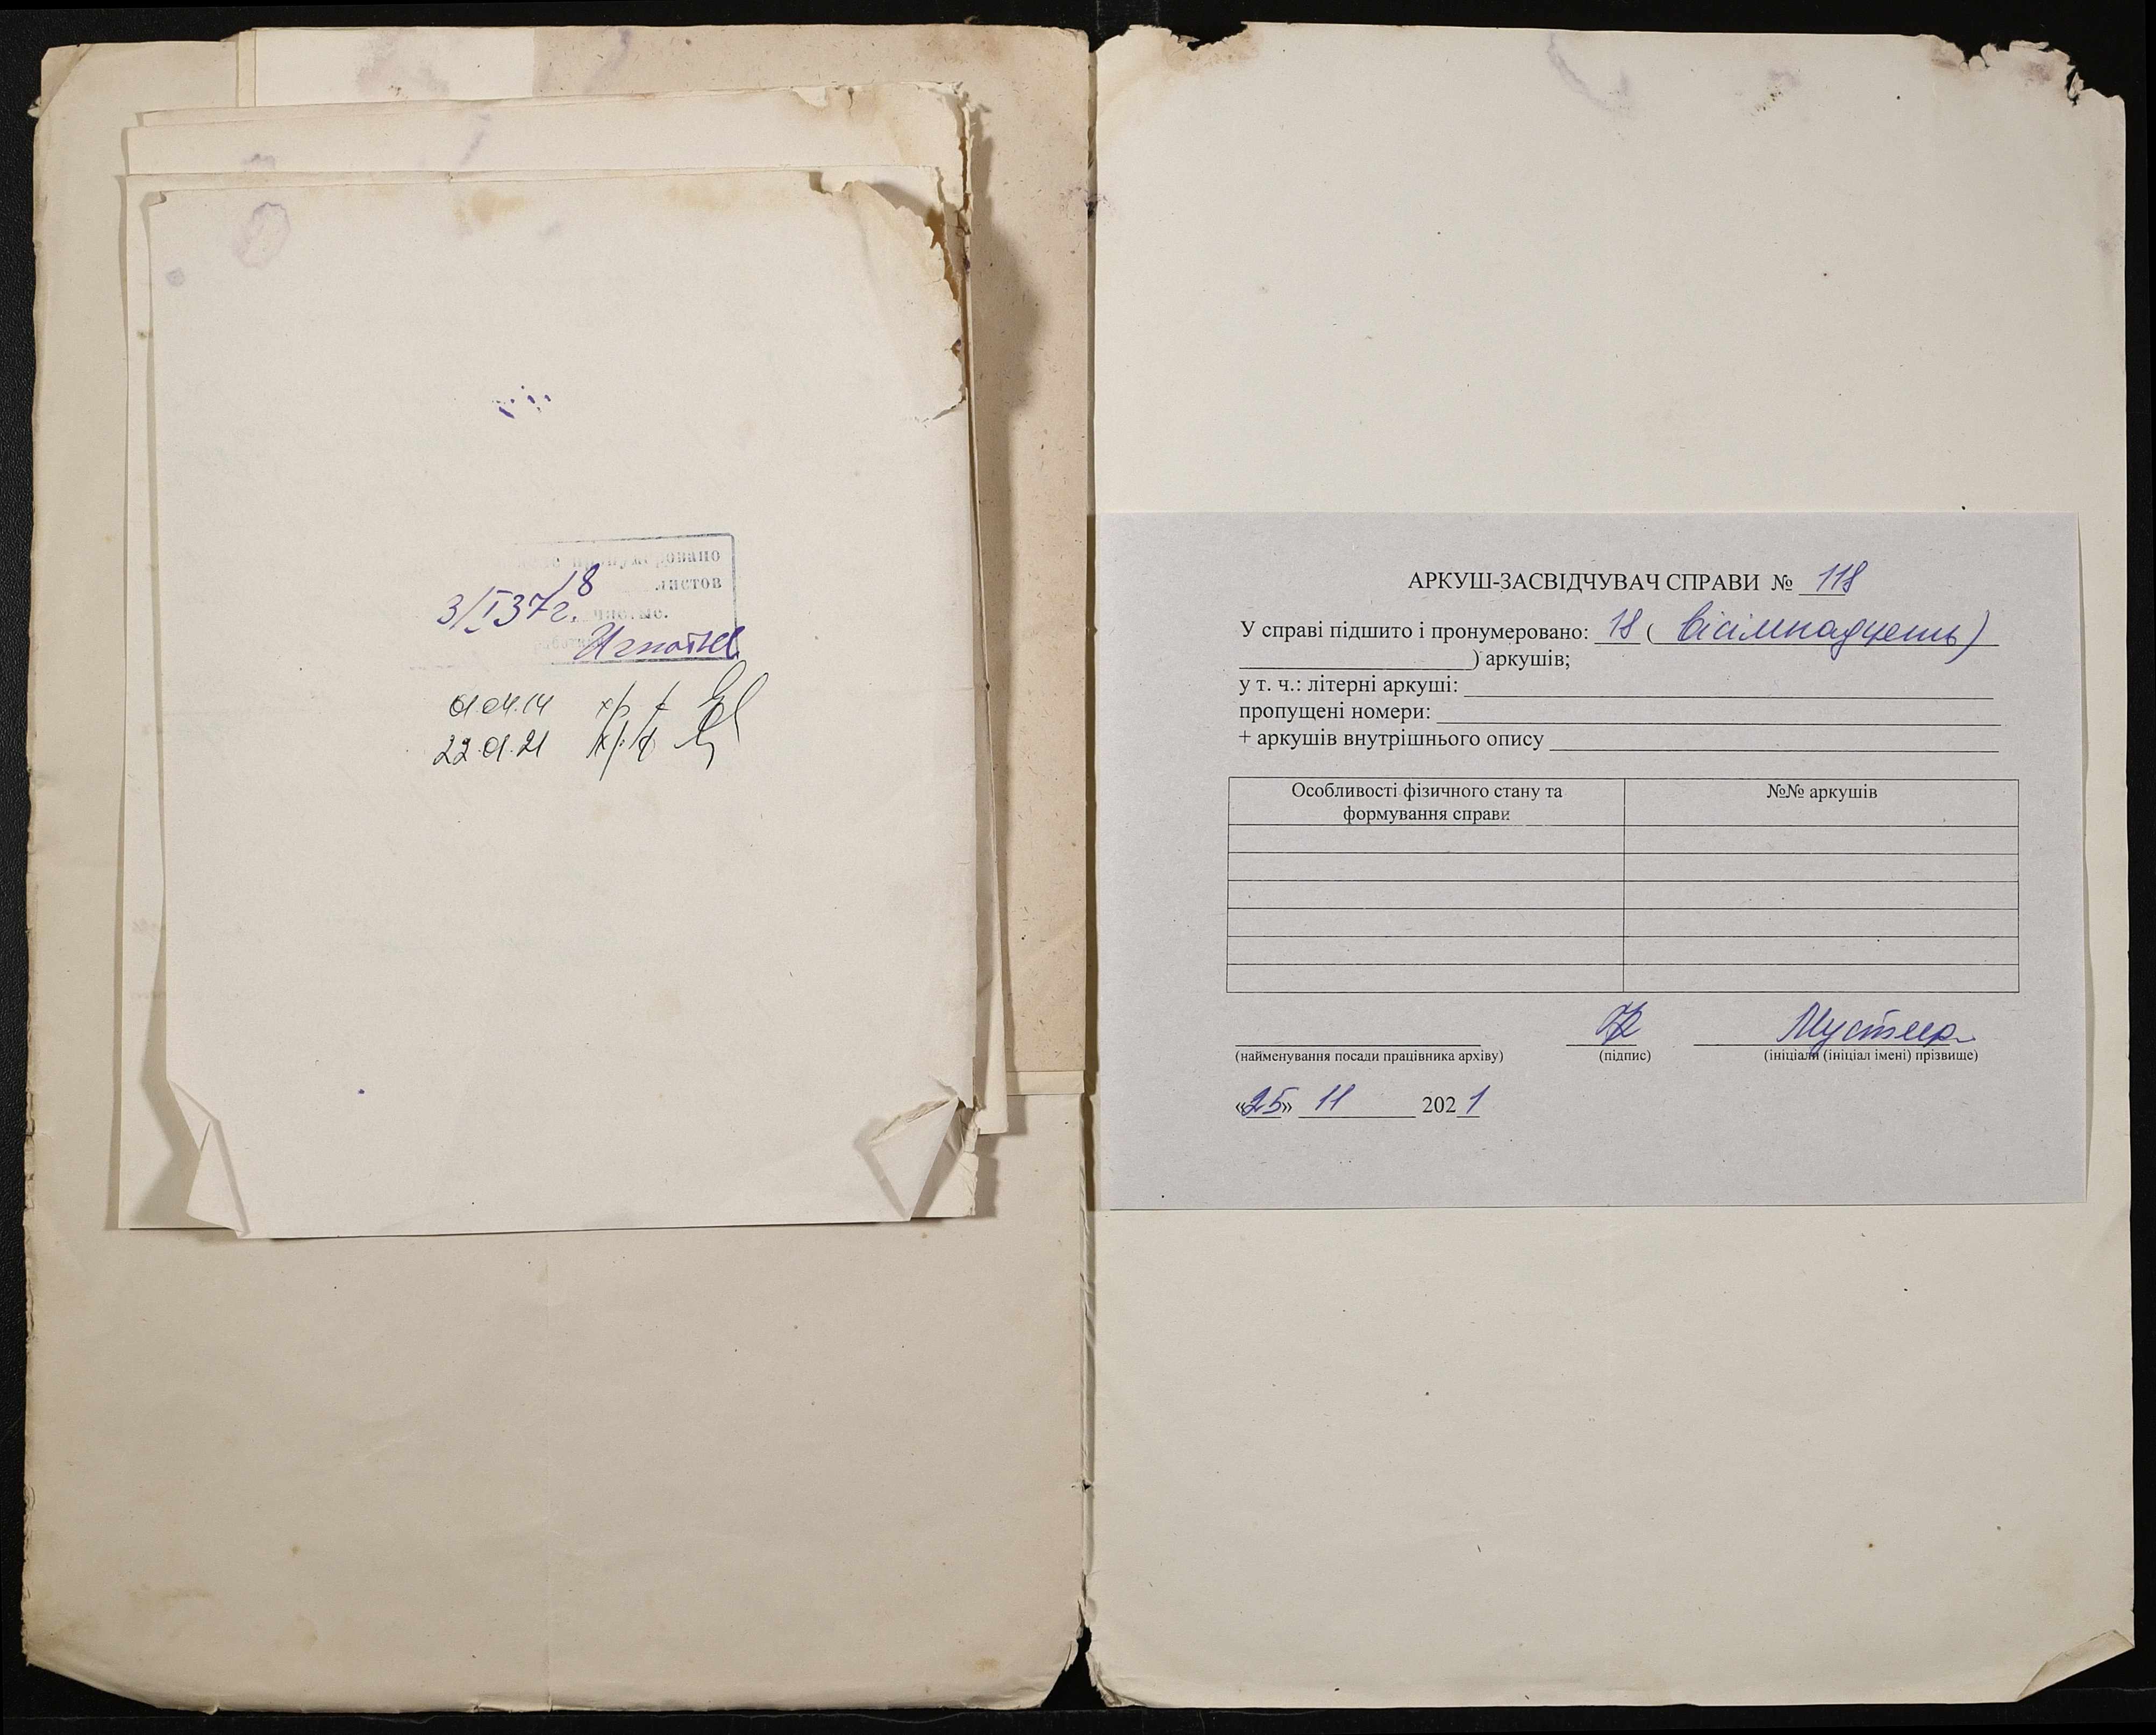 пронумеровано
18 листов
3/I 37г.
01.04.14
22.01.21
АРКУШ-ЗАСВІДЧУВАЧ СПРАВИ № 118
У справі підшито і пронумеровано: 18 ( вісімнадцять )
) аркушів;
у т. ч.: літерні аркуші:
пропущені номери:
+ аркушів внутрішнього опису
Особливості фізичного стану та формування справи
№№ аркушів
(найменування посади працівника архіву)
(підпис)
(ініціали (ініціал імені) прізвище)
«25» 11 2021